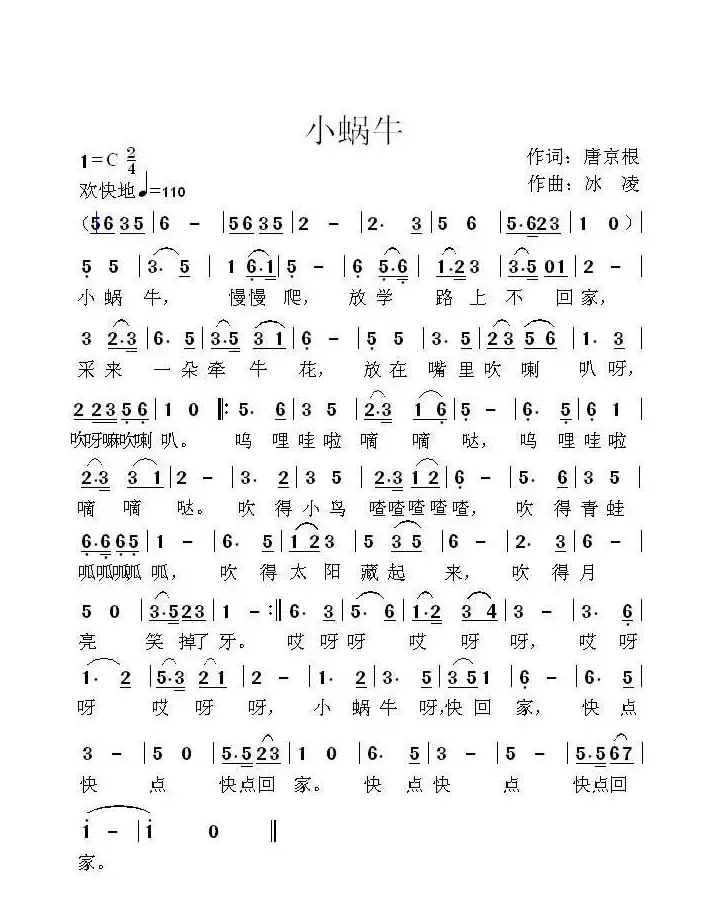 小蜗牛
1=C 2/4
作词：唐京根
欢快地♩=110
作曲：冰 凌
（5 6 3 5 | 6 - | 5 6 3 5 | 2 - | 2· 3 | 5 6 | 5·6 2 3 | 1 0 ）|
5 5 | 3· 5 | 1 6·1 | 5 - | 6 5·6 | 1·2 3 | 3·5 0 1 | 2 - |
小 蜗 牛， 慢慢 爬， 放 学 路 上 不 回 家，
3 2·3 | 6· 5 | 3·5 3 1 | 6 - | 5 5 | 3· 5 | 2 3 5 6 | 1· 3 |
采 来 一 朵 牵 牛 花， 放 在 嘴 里 吹 喇 叭 呀，
2 2 3 3 5 6 | 1 0 ‖: 5· 6 | 3 5 | 2·3 1 6 | 5 - | 6· 5 | 6 1 |
吹呀嘛吹喇 叭。 呜 哩 哇 啦 嘀 嘀 哒， 呜 哩 哇 啦
2·3 3 1 | 2 - | 3· 2 | 3 5 | 2·3 1 2 | 6 - | 5· 6 | 3 5 |
嘀 嘀 哒。 吹 得 小 鸟 喳喳 喳 喳 喳， 吹 得 青 蛙
6·6 6 5 | 1 - | 6· 5 | 1 2 3 | 5 3 5 | 6 - | 2· 3 | 6 - |
呱呱呱呱 呱， 吹 得 太 阳 藏 起 来， 吹 得 月
5 0 | 3·5 2 3 | 1 - :‖ 6· 3 | 5· 6 | 1·2 3 4 | 3 - | 3· 6 |
亮 笑 掉了 牙。 哎 呀 呀 哎 呀 呀， 哎 呀
1· 2 | 5·3 2 1 | 2 - | 1· 2 | 3· 5 | 3 5 1 | 6 - | 6· 5 |
呀 哎 呀 呀， 小 蜗 牛 呀,快 回 家， 快 点
3 - | 5 0 | 5·5 2 3 | 1 0 | 6· 5 | 3 - | 5 - | 5·5 6 7 |
快 点 快点回 家。 快 点 快 点 快点回
1 - | 1 0 ‖
家。